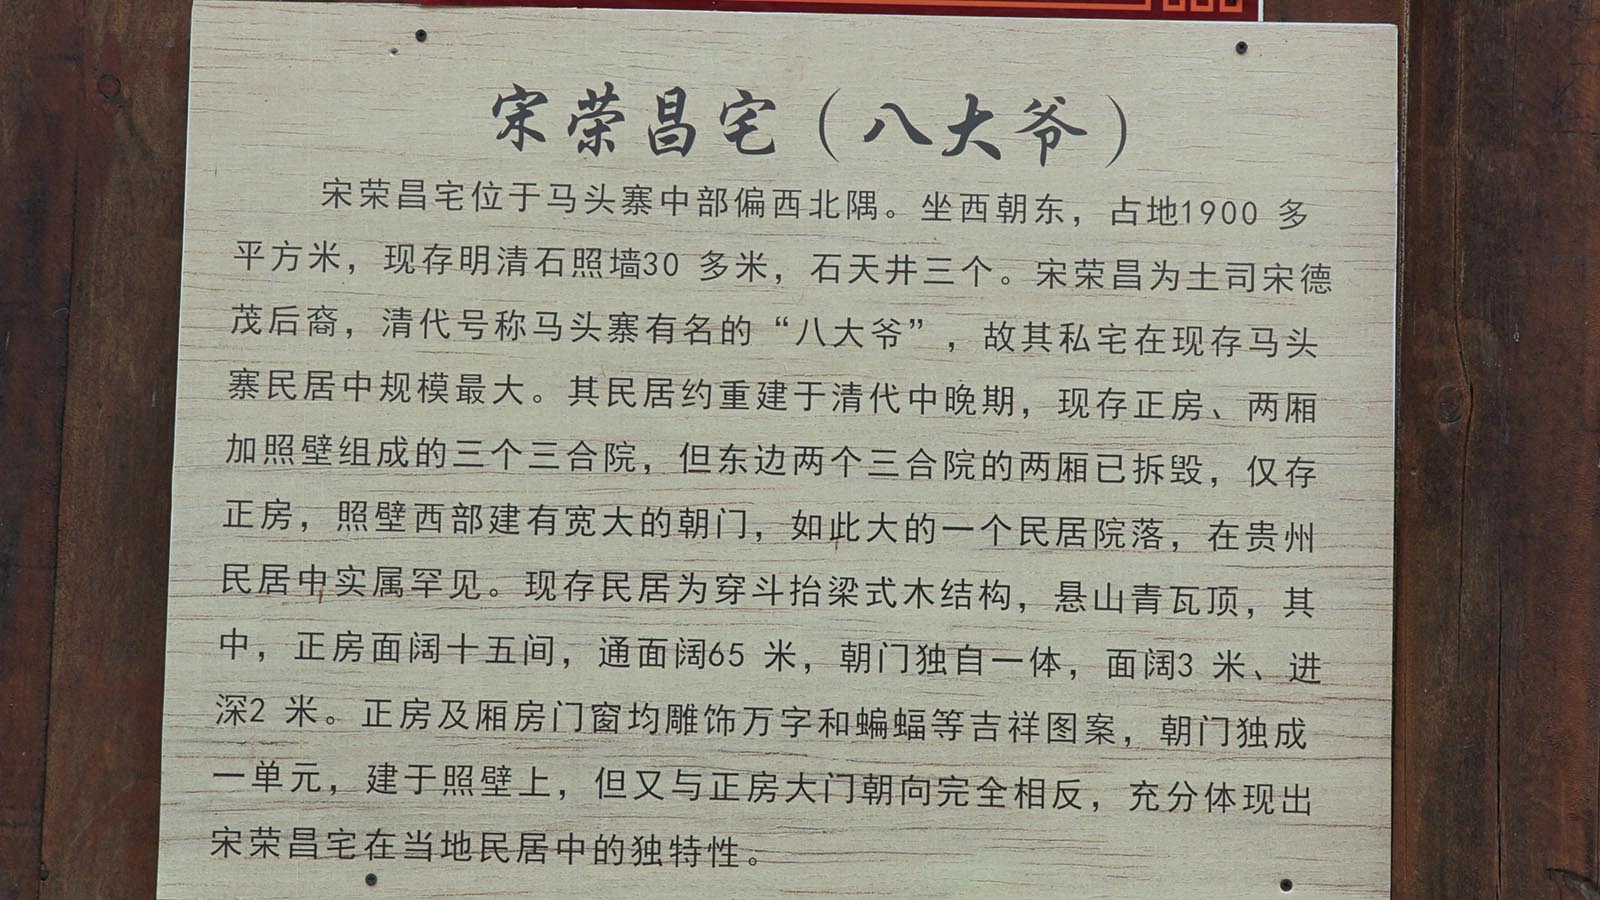 宋荣昌宅（八大爷）
宋荣昌宅位于马头寨中部偏西北隅。坐西朝东，占地1900 多
平方米，现存明清石照墙30 多米，石天井三个。宋荣昌为土司宋德
茂后裔，清代号称马头寨有名的“八大爷”，故其私宅在现存马头
寨民居中规模最大。其民居约重建于清代中晚期，现存正房、两厢
加照壁组成的三个三合院，但东边两个三合院的两厢已拆毁，仅存
正房，照壁西部建有宽大的朝门，如此大的一个民居院落，在贵州
民居中实属罕见。现存民居为穿斗抬梁式木结构，悬山青瓦顶，其
中，正房面阔十五间，通面阔65 米，朝门独自一体，面阔3 米、进
深2 米。正房及厢房门窗均雕饰万字和蝙蝠等吉祥图案，朝门独成
一单元，建于照壁上，但又与正房大门朝向完全相反，充分体现出
宋荣昌宅在当地民居中的独特性。